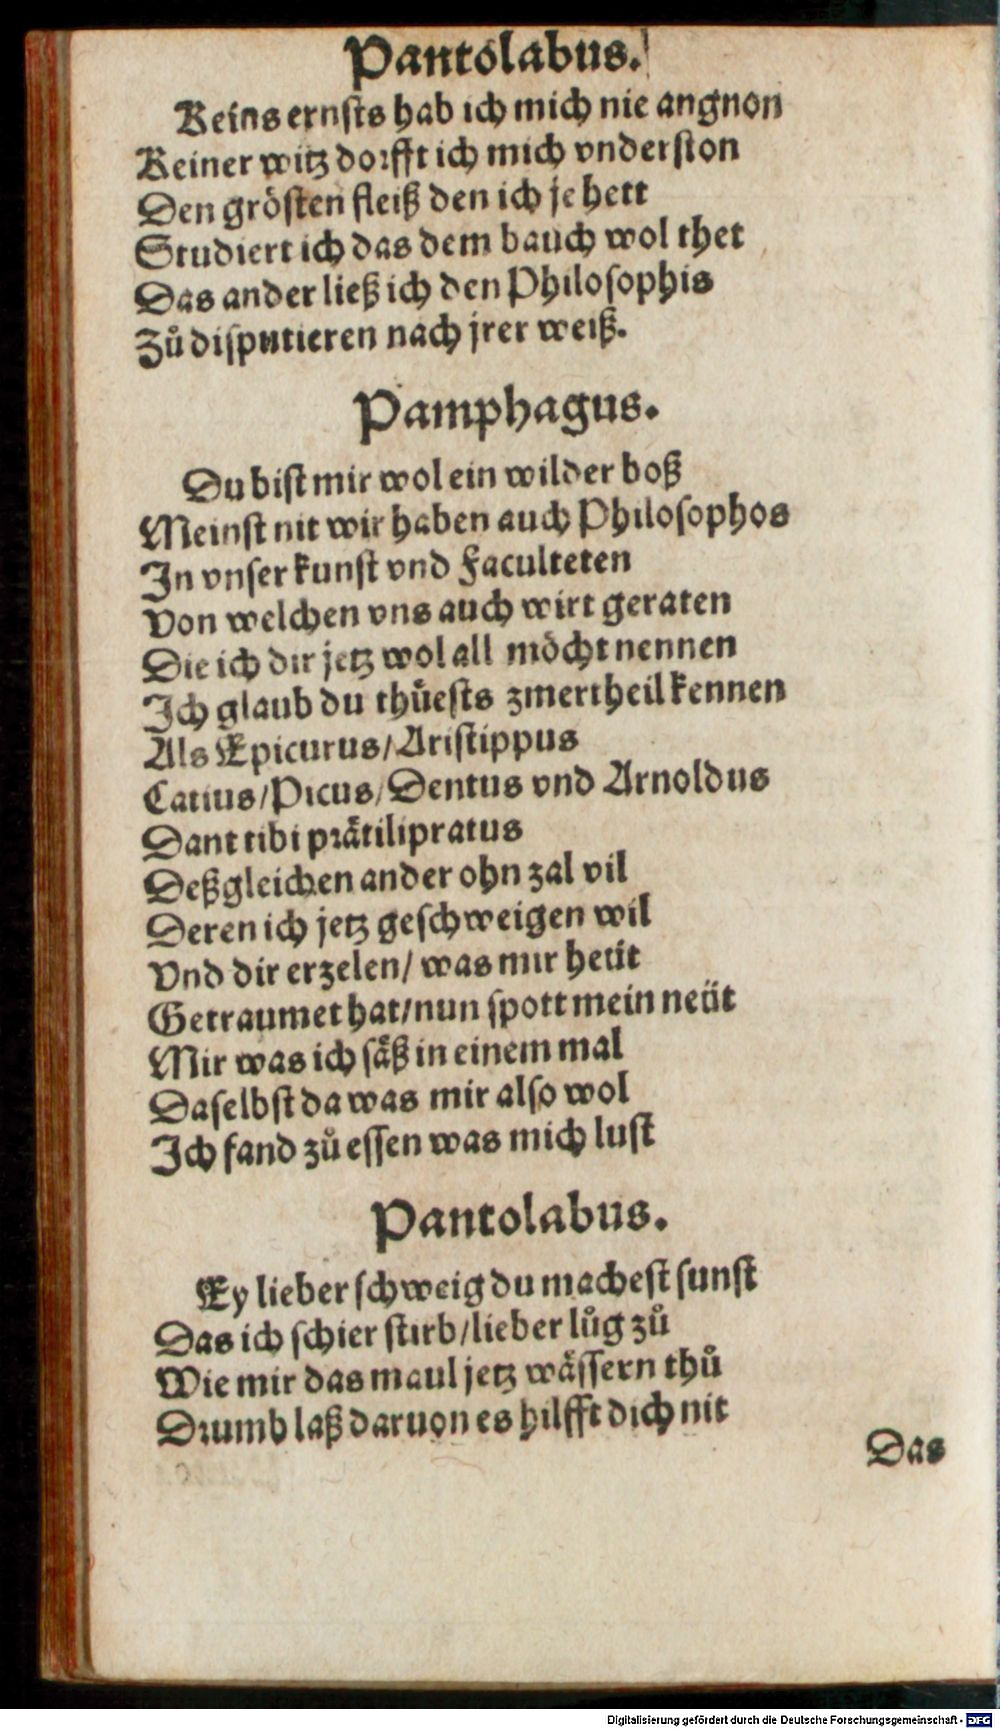 Pantolabus.
Keins ernsts hab ich mich nie angnon
Keiner witz dorfft ich mich vnderston
Den grösten fleiß den ich je hett
Studiert ich das dem bauch wol thet
Das ander ließ ich den Philosophis
Zů disputieren nach jrer weiß.
Pamphagus.
Du bist mir wol ein wilder boß
Meinst nit wir haben auch Philosophos
In vnser kunst vnd Faculteten
Von welchen vns auch wirt geraten
Die ich dir jetz wol all möcht nennen
Ich glaub du thůests zmertheil kennen
Als Epicurus/Aristippus
Catius/Picus/Dentus vnd Arnoldus
Dant tibi prätilipratus
Deßgleichen ander ohn zal vil
Deren ich jetz geschweigen wil
Vnd dir erzelen/ was mir heüt
Getraumet hat/nun spott mein neüt
Mir was ich säß in einem mal
Daselbst da was mir also wol
Ich fand zů essen was mich lust
Pantolabus.
Ey lieber schweig du machest sunst
Das ich schier stirb/lieber lůg zů
Wie mir das maul jetz wässern thů
Drumb laß daruon es hilfft dich nit
Das
Digitalisierung gefördert durch die Deutsche Forschungsgemeinschaft - DFG